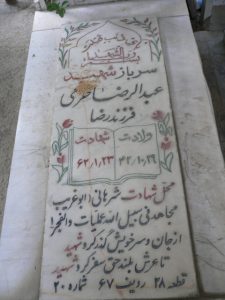 سرباز شهید
عبدالرضا
فرزند رضا
ولادت
شهادت
۶۲/۱/۲۳
محل شهادت شرهانی ابوغریب
مجاهد فی سبیل الله عملیات والفجر۱
از جان و سر خویش گذر کرد شهید
تا عرش بلند حق سفر کرد شهید
قطعه ۲۸ ردیف ۶۷ شماره ۲۰